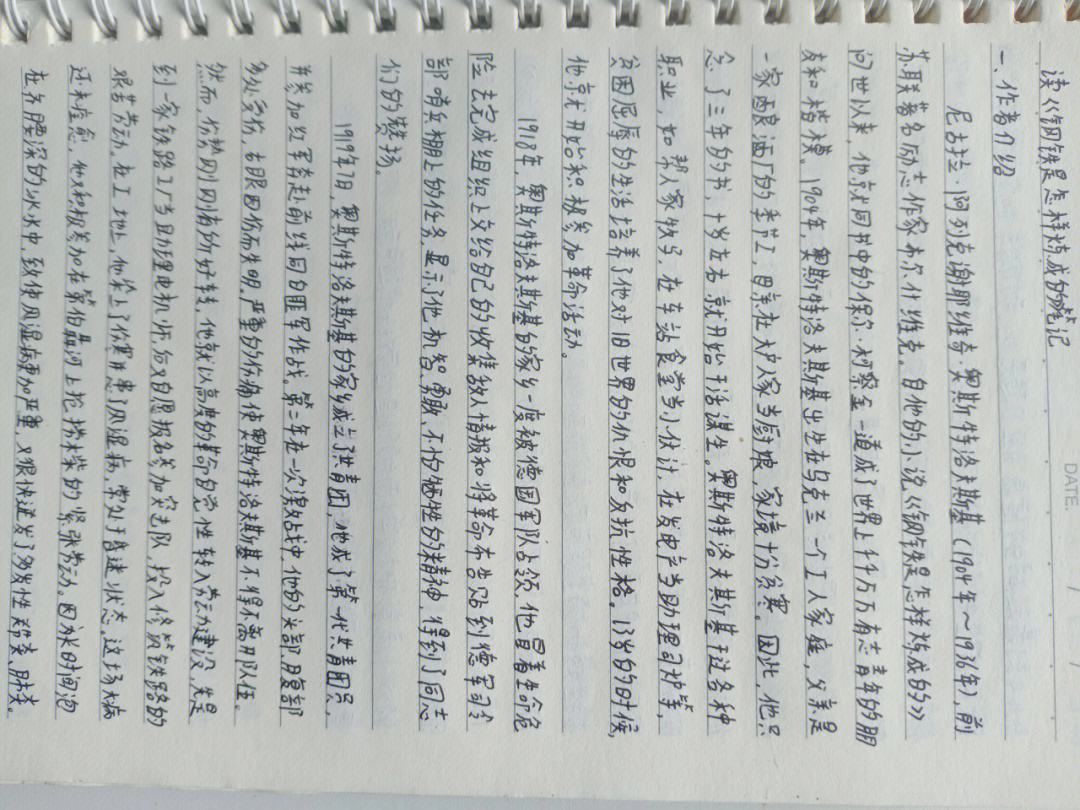 DATE.
读《钢铁是怎样炼成的》笔记
一、作者介绍
尼古拉·阿列克谢耶维奇·奥斯特洛夫斯基(1904年~1936年),前
苏联著名励志作家布尔什维克。自他的小说《钢铁是怎样炼成的》
问世以来,他就同书中的保尔·柯察金一道成了世界上千千万万有志青年的朋
友和楷模。1904年,奥斯特洛夫斯基出生在乌克兰一个工人家庭,父亲是
一家酿酒厂的季节工,母亲在大户人家当厨娘,家境十分贫寒。因此,他只
念了三年的书,十岁左右就开始干活谋生。奥斯特洛夫斯基干过各种
职业,如帮人家牧马,在车站食堂当小伙计,在发电厂当助理司炉等,
贫困屈辱的生活培养了他对旧世界的仇恨和反抗性格。13岁的时候,
他就开始积极参加革命活动。
1918年,奥斯特洛夫斯基的家乡一度被德国军队占领,他冒着生命危
险去完成组织上交给自己的收集敌人情报和将革命布告贴到德军司令
部哨兵棚上的任务,显示了他机智勇敢、不怕牺牲的精神,得到了同志
们的赞扬。
1919年7月,奥斯特洛夫斯基的家乡成立了共青团,他成了第一代共青团员,
并参加红军奔赴前线同白匪军作战。第二年在一次激战中,他的头部、腹部
多处受伤,右眼因伤而失明,严重的伤痛使奥斯特洛夫斯基不得不离开队伍。
然而,伤势刚刚有所好转,他就以高度的革命自觉性转入劳动建设,先是
到一家铁路工厂当助理电机师,后又自愿报名参加突击队,投入修筑铁路的
艰苦劳动。在工地上,他染上了伤寒并患了风湿病,常处于昏迷状态。这场大病
还未痊愈,他又积极参加在第伯聂河上抢捞木柴的紧张劳动。因为长时间泡
在齐腰深的冰水中,致使风湿病更加严重,又很快并发了多发性神经炎、肺炎。